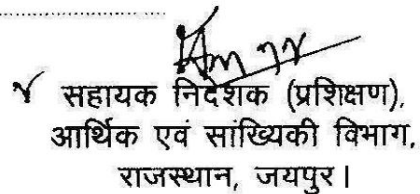 सहायक निदेशक (प्रशिक्षण),
आर्थिक एवं सांख्यिकी विभाग,
राजस्थान, जयपुर।